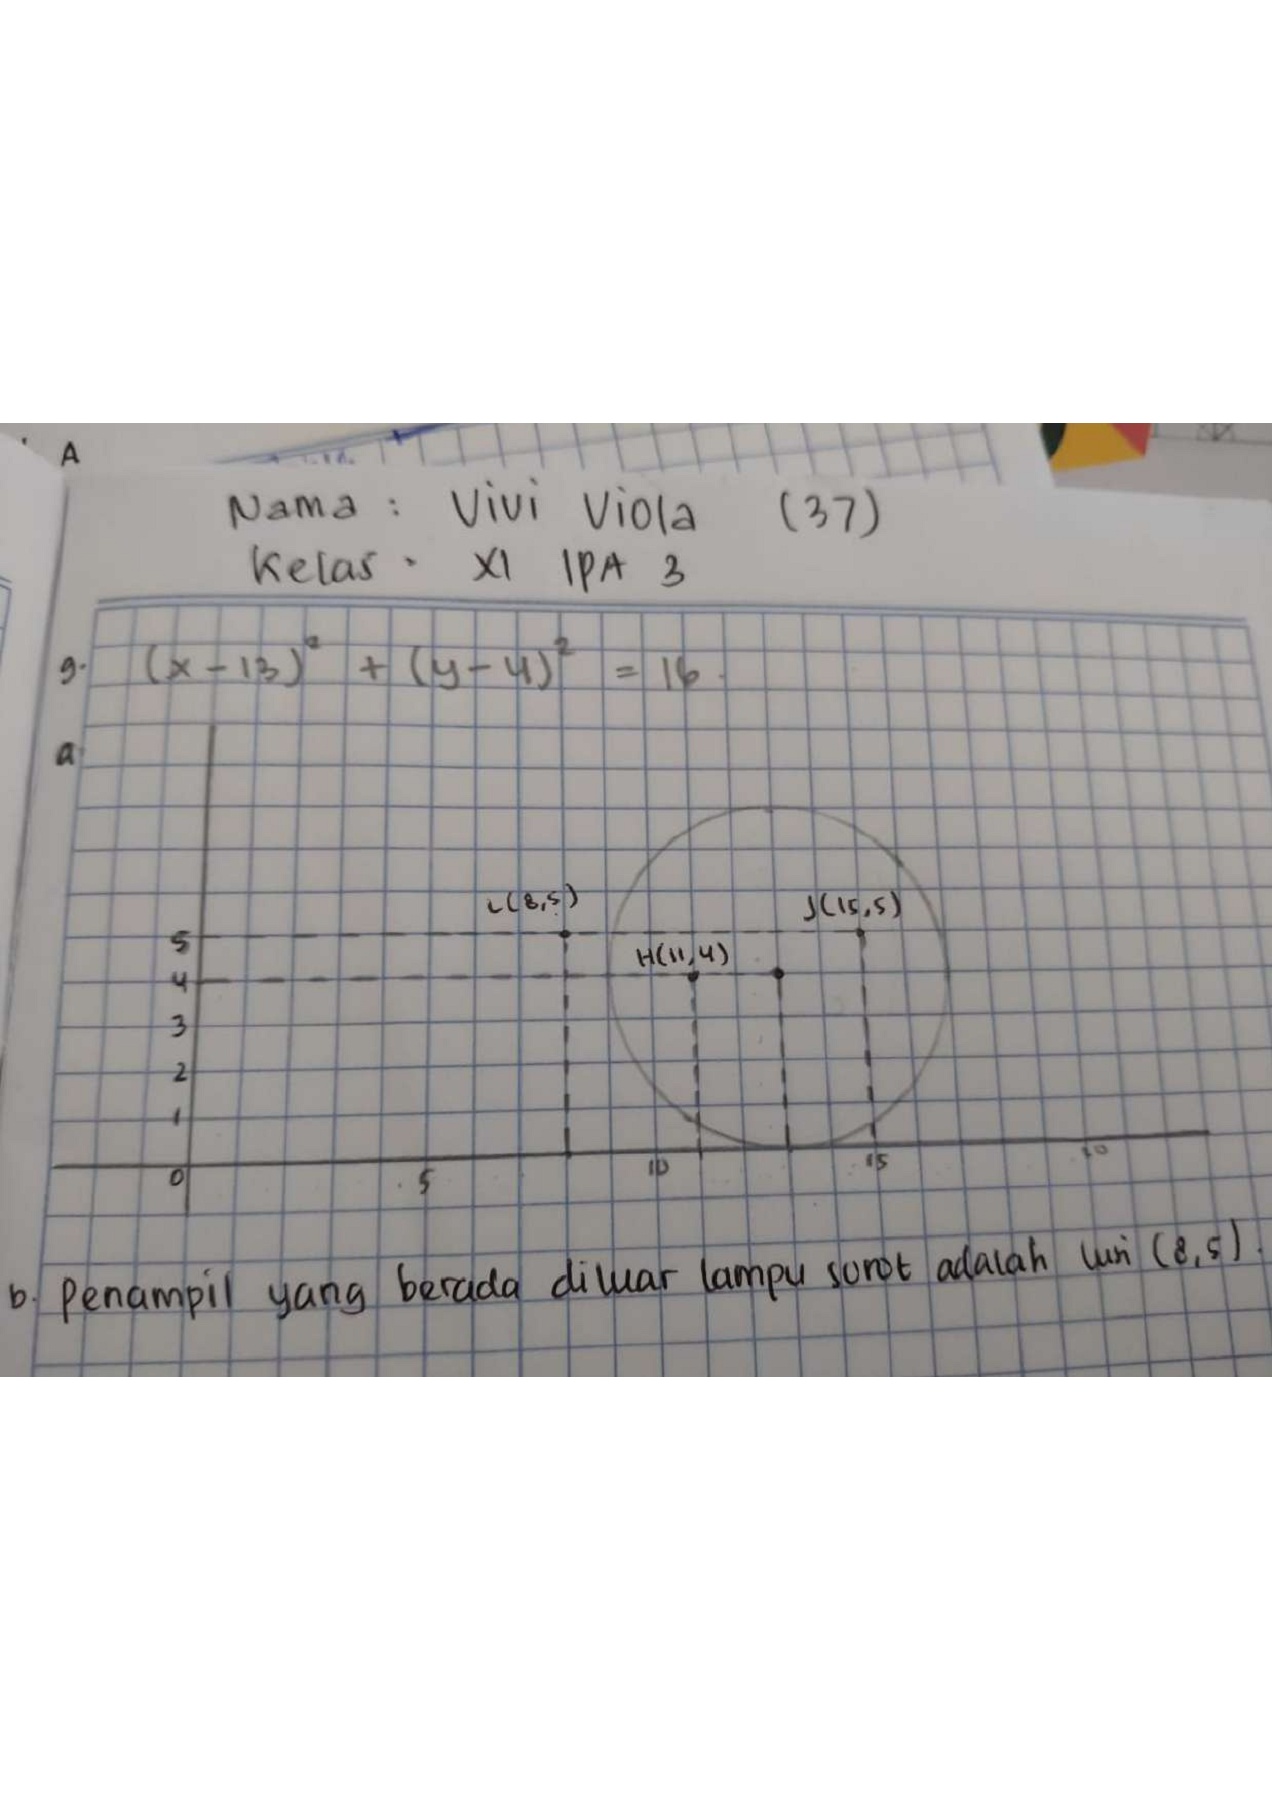 A
Nama : Vivi Viola (37)
Kelas . XI IPA 3
9. (x-13)² + (y-4)² = 16.
a.
L(8,5)
J(15,5)
5
H(11,4)
4
3
2
1
0 5 10 15
b. Penampil yang berada diluar lampu sorot adalah Luri (8,5).